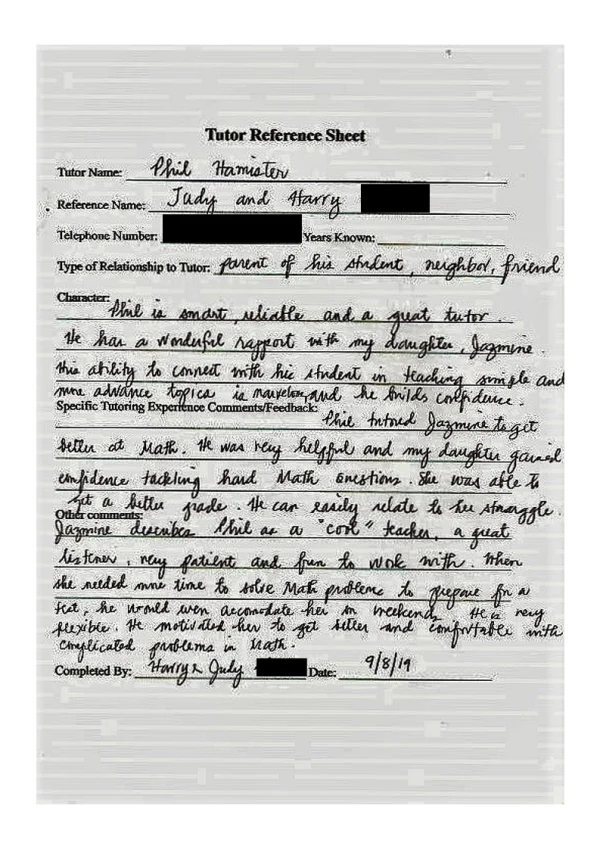 Tutor Reference Sheet
Tutor Name: Phil Hamister
Reference Name: Judy and Harry
Telephone Number: Years Known:
Type of Relationship to Tutor: parent of his student, neighbor, friend
Character:
Phil is smart, reliable and a great tutor.
He has a wonderful rapport with my daughter, Jazmine.
His ability to connect with his student in teaching simple and
more advance topics is marvelous, and he builds confidence.
Specific Tutoring Experience Comments/Feedback:
Phil tutored Jazmine to get
better at Math. He was very helpful and my daughter gained
confidence tackling hard Math questions. She was able to
get a better grade. He can easily relate to her struggle.
Other comments:
Jazmine describes Phil as a "cool" teacher, a great
listener, very patient and fun to work with. When
she needed more time to solve Math problems to prepare for a
test, he would even accomodate her on weekends. He is very
flexible. He motivated her to get better and comfortable with
complicated problems in Math.
Completed By: Harry & Judy Date: 9/8/19